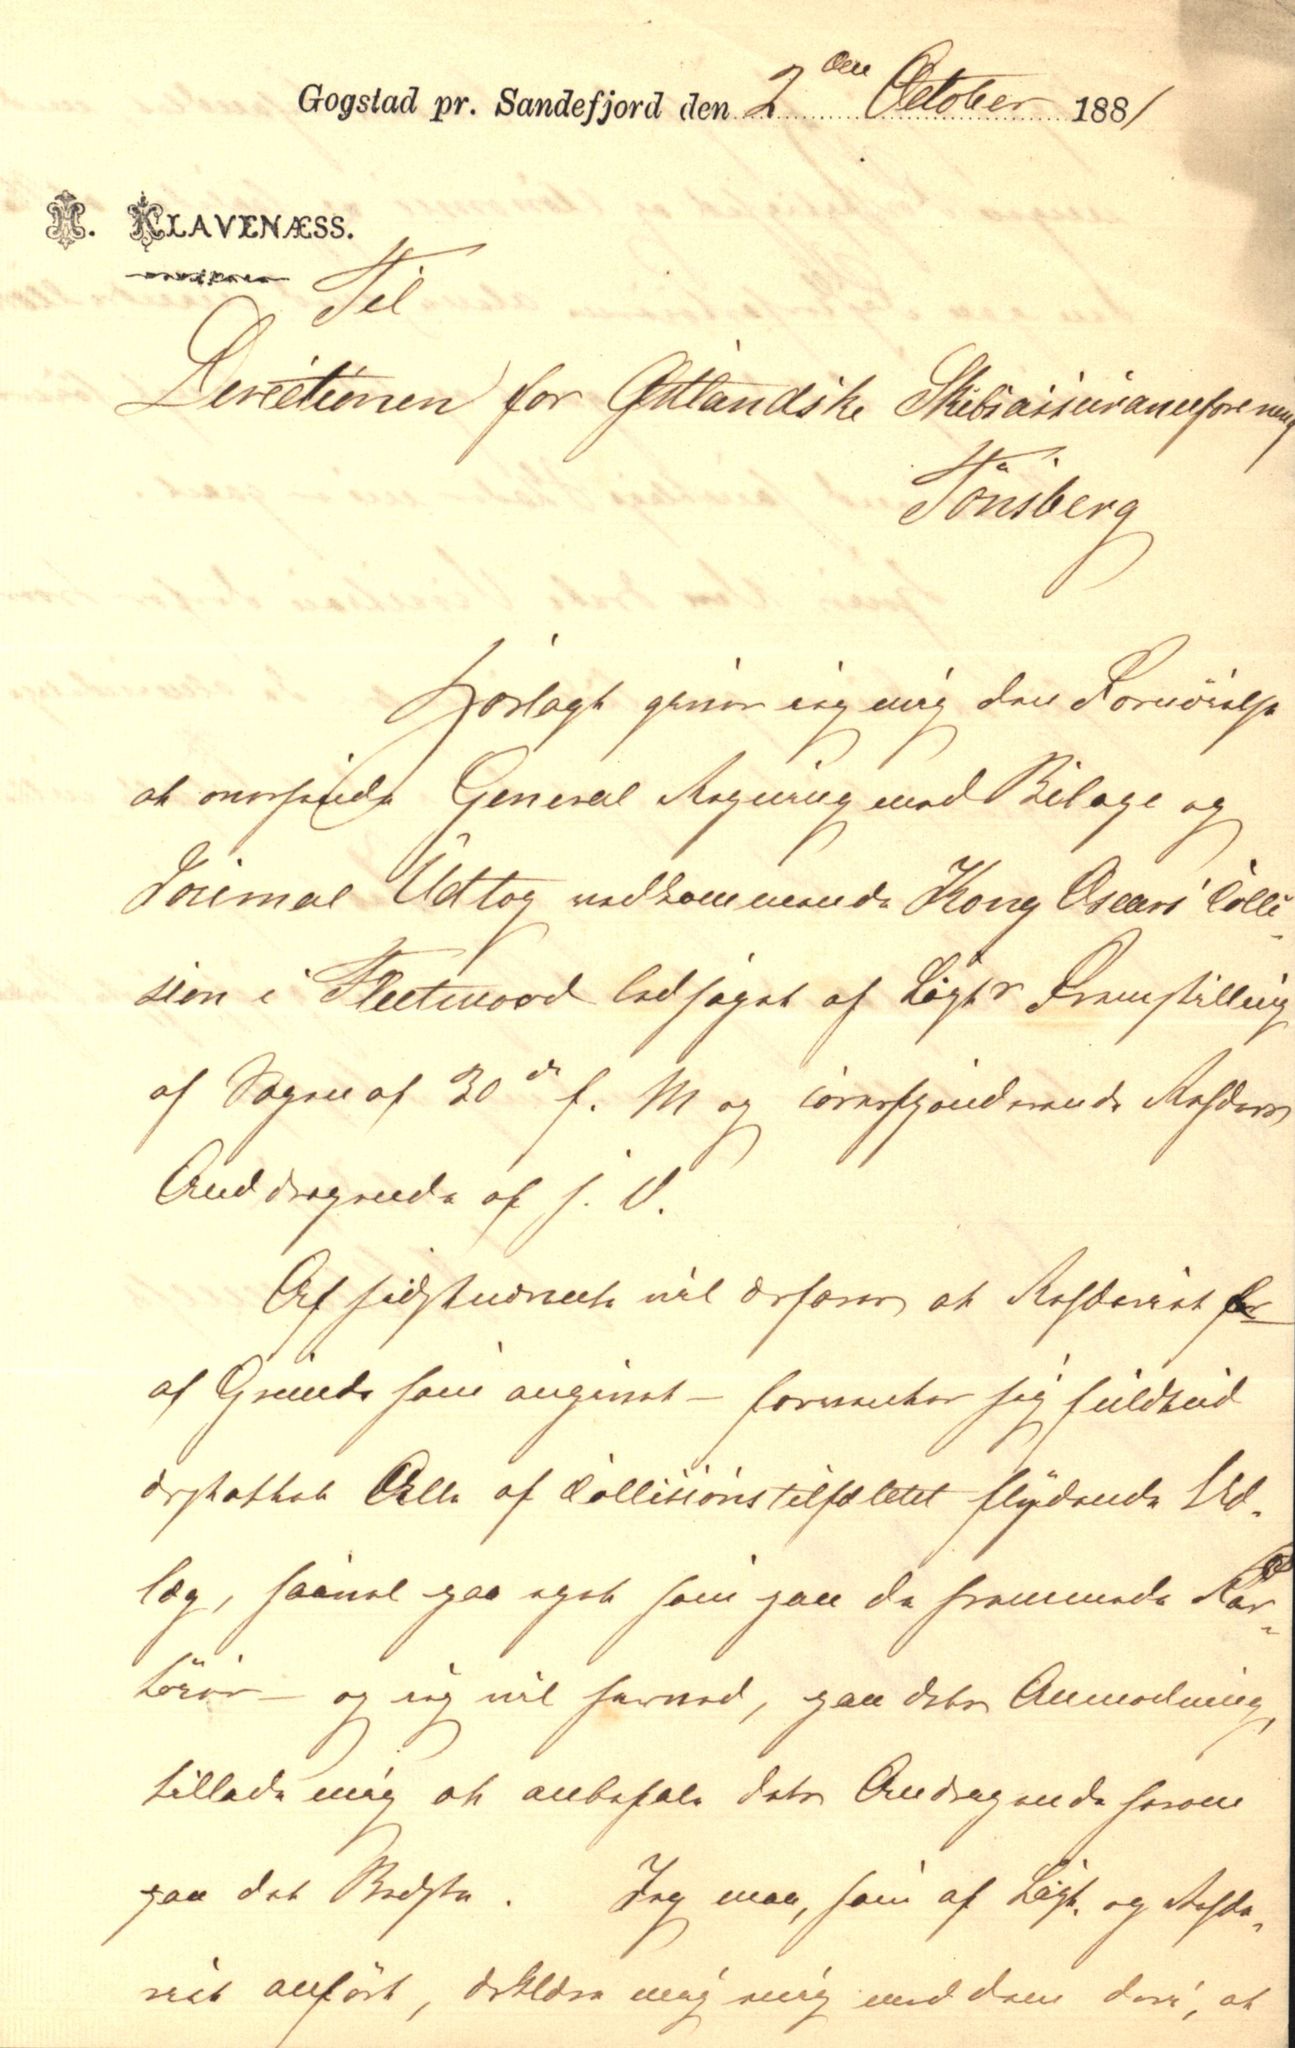 Gogstad pr. Sandefjord den 2den October 1881
A. KLAVENÆSS.
Til
Directionen for Østlandske Skibsassuranceforening
Tönsberg
Hoslagt giver jeg mig den Fornöielse
at oversende General Regning med Bilage og
Journal Udtog vedkommende Kong Oscars Colli-
sion i Fleetwood ledsaget af Capt's Fremstilling
af Sagen af 30de f. M og corresponderende Rederes
Anddragende af s. D.
Af sidstnævnte vil erfares at Rederiet
af Grunde som angivet – forventer sig fuldtud
erstattet Alle af Collisionstilfældet flydende Ud-
læg, saavel paa eget som paa de fremmede Far-
töier – og jeg vil herved, paa dets Anmodning,
tillade mig at anbefale dets Andragende herom
paa det Bedste. Jeg maa, som af Capt. og Rede-
riet anfört, erklære mig enig med dem deri, at